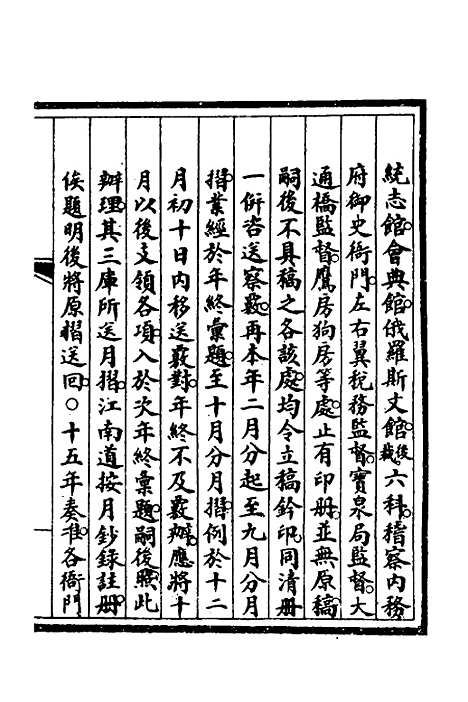 統志館。會典館。俄羅斯文館。後裁。六科。稽察內務
府御史衙門。左右翼稅務監督。寶泉局監督。大
通橋監督。鷹房狗房等處。止有印冊。並無原稿。
嗣後不具稿之各該處。均令立稿鈐印。同清冊
一併咨送察覈。再本年二月分起至九月分月
摺。業經於年終彙題。至十月分月摺。例於十二
月初十日內移送覈對。年終不及覈辦。應將十
月以後支領各項。入於次年終彙題。嗣後照此
辦理。其三庫所送月摺。江南道按月鈔錄註冊。
俟題明後將原摺送回。○十五年奏准。各衙門